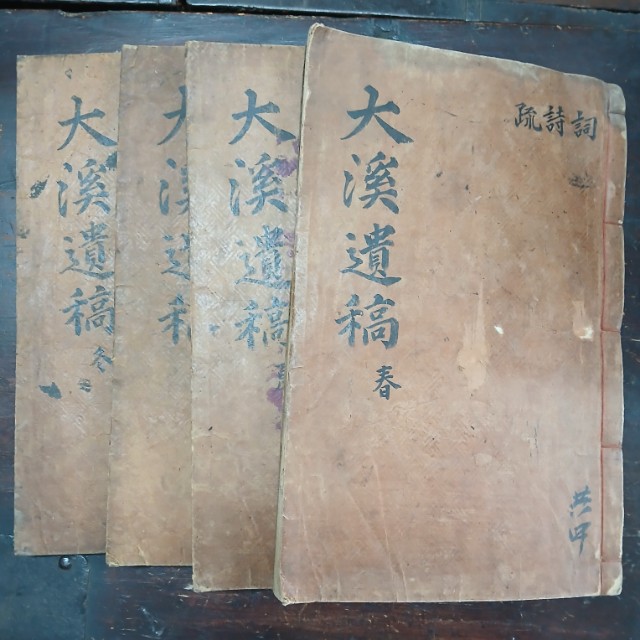 詞詩疏
大溪遺稿 春
共四
大溪遺稿
大溪遺稿
大溪遺稿 冬